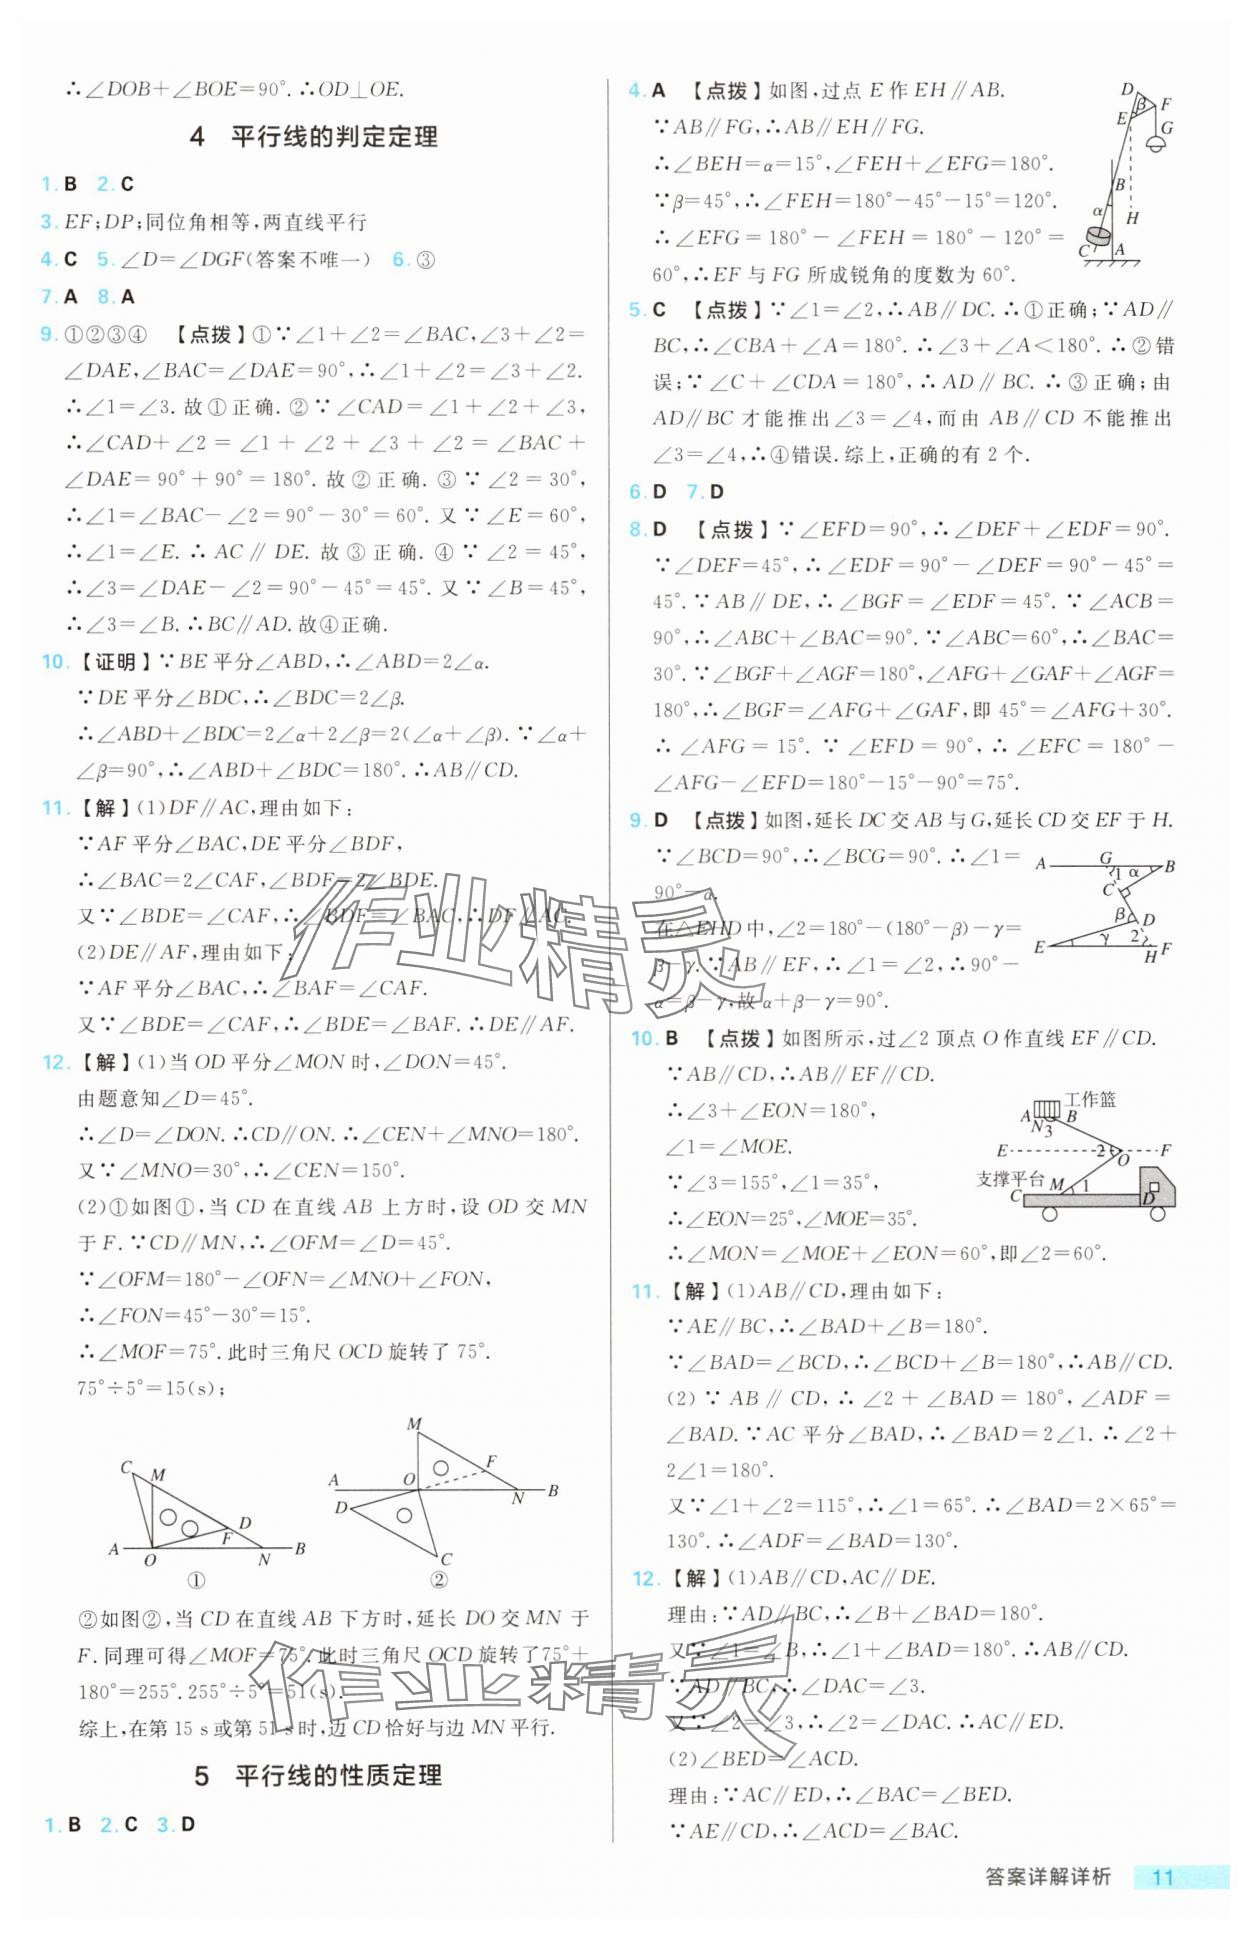 ∴∠DOB+∠BOE=90°.∴OD⊥OE.
4 平行线的判定定理
1. B 2. C
3. EF;DP;同位角相等,两直线平行
4. C 5. ∠D=∠DGF(答案不唯一) 6. ③
7. A 8. A
9. ①②③④ 【点拨】①∵∠1+∠2=∠BAC,∠3+∠2=
∠DAE,∠BAC=∠DAE=90°,∴∠1+∠2=∠3+∠2.
∴∠1=∠3.故①正确.②∵∠CAD=∠1+∠2+∠3,
∴∠CAD+∠2=∠1+∠2+∠3+∠2=∠BAC+
∠DAE=90°+90°=180°.故②正确.③∵∠2=30°,
∴∠1=∠BAC-∠2=90°-30°=60°.又∵∠E=60°,
∴∠1=∠E.∴AC∥DE.故③正确.④∵∠2=45°,
∴∠3=∠DAE-∠2=90°-45°=45°.又∵∠B=45°,
∴∠3=∠B.∴BC∥AD.故④正确.
10. 【证明】∵BE平分∠ABD,∴∠ABD=2∠α.
∵DE平分∠BDC,∴∠BDC=2∠β.
∴∠ABD+∠BDC=2∠α+2∠β=2(∠α+∠β).∵∠α+
∠β=90°,∴∠ABD+∠BDC=180°.∴AB∥CD.
11. 【解】(1)DF∥AC,理由如下:
∵AF平分∠BAC,DE平分∠BDF,
∴∠BAC=2∠CAF,∠BDF=2∠BDE.
又∵∠BDE=∠CAF,∴∠BDF=∠BAC,∴DF∥AC.
(2)DE∥AF,理由如下:
∵AF平分∠BAC,∴∠BAF=∠CAF.
又∵∠BDE=∠CAF,∴∠BDE=∠BAF.∴DE∥AF.
12. 【解】(1)当OD平分∠MON时,∠DON=45°.
由题意知∠D=45°.
∴∠D=∠DON.∴CD∥ON.∴∠CEN+∠MNO=180°.
又∵∠MNO=30°,∴∠CEN=150°.
(2)①如图①,当CD在直线AB上方时,设OD交MN
于F.∵CD∥MN,∴∠OFM=∠D=45°.
∵∠OFM=180°-∠OFN=∠MNO+∠FON,
∴∠FON=45°-30°=15°.
∴∠MOF=75°.此时三角尺OCD旋转了75°.
75°÷5°=15(s);
C M D F A O N B ①
M A O F N B D C ②
②如图②,当CD在直线AB下方时,延长DO交MN于
F.同理可得∠MOF=75°.此时三角尺OCD旋转了75°+
180°=255°.255°÷5°=51(s).
综上,在第15 s或第51 s时,边CD恰好与边MN平行.
5 平行线的性质定理
1. B 2. C 3. D
4. A 【点拨】如图,过点E作EH∥AB.
∵AB∥FG,∴AB∥EH∥FG.
∴∠BEH=α=15°,∠FEH+∠EFG=180°.
∵β=45°,∴∠FEH=180°-45°-15°=120°.
∴∠EFG=180°-∠FEH=180°-120°=
60°,∴EF与FG所成锐角的度数为60°.
D β F E G B α H C A
5. C 【点拨】∵∠1=∠2,∴AB∥DC.∴①正确;∵AD∥
BC,∴∠CBA+∠A=180°.∴∠3+∠A<180°.∴②错
误;∵∠C+∠CDA=180°,∴AD∥BC.∴③正确;由
AD∥BC才能推出∠3=∠4,而由AB∥CD不能推出
∠3=∠4,∴④错误.综上,正确的有2个.
6. D 7. D
8. D 【点拨】∵∠EFD=90°,∴∠DEF+∠EDF=90°.
∵∠DEF=45°,∴∠EDF=90°-∠DEF=90°-45°=
45°.∵AB∥DE,∴∠BGF=∠EDF=45°.∵∠ACB=
90°,∴∠ABC+∠BAC=90°.∵∠ABC=60°,∴∠BAC=
30°.∵∠BGF+∠AGF=180°,∠AFG+∠GAF+∠AGF=
180°,∴∠BGF=∠AFG+∠GAF,即45°=∠AFG+30°.
∴∠AFG=15°.∵∠EFD=90°,∴∠EFC=180°-
∠AFG-∠EFD=180°-15°-90°=75°.
9. D 【点拨】如图,延长DC交AB与G,延长CD交EF于H.
∵∠BCD=90°,∴∠BCG=90°.∴∠1=
90°-α.
在△EHD中,∠2=180°-(180°-β)-γ=
β-γ.∵AB∥EF,∴∠1=∠2,∴90°-
α=β-γ,故α+β-γ=90°.
A G 1 α B C β D E γ 2 H F
10. B 【点拨】如图所示,过∠2顶点O作直线EF∥CD.
∵AB∥CD,∴AB∥EF∥CD.
∴∠3+∠EON=180°,
∠1=∠MOE.
∵∠3=155°,∠1=35°,
∴∠EON=25°,∠MOE=35°.
∴∠MON=∠MOE+∠EON=60°,即∠2=60°.
工作篮
A B N 3 E 2 O F
支撑平台
M 1 C D
11. 【解】(1)AB∥CD,理由如下:
∵AE∥BC,∴∠BAD+∠B=180°.
∵∠BAD=∠BCD,∴∠BCD+∠B=180°,∴AB∥CD.
(2)∵AB∥CD,∴∠2+∠BAD=180°,∠ADF=
∠BAD.∵AC平分∠BAD,∴∠BAD=2∠1.∴∠2+
2∠1=180°.
又∵∠1+∠2=115°,∴∠1=65°.∴∠BAD=2×65°=
130°.∴∠ADF=∠BAD=130°.
12. 【解】(1)AB∥CD,AC∥DE.
理由:∵AD∥BC,∴∠B+∠BAD=180°.
又∵∠1=∠B,∴∠1+∠BAD=180°.∴AB∥CD.
∵AD∥BC,∴∠DAC=∠3.
又∵∠2=∠3,∴∠2=∠DAC.∴AC∥ED.
(2)∠BED=∠ACD.
理由:∵AC∥ED,∴∠BAC=∠BED.
∵AE∥CD,∴∠ACD=∠BAC.
作业精灵
作业精灵
答案详解详析 11